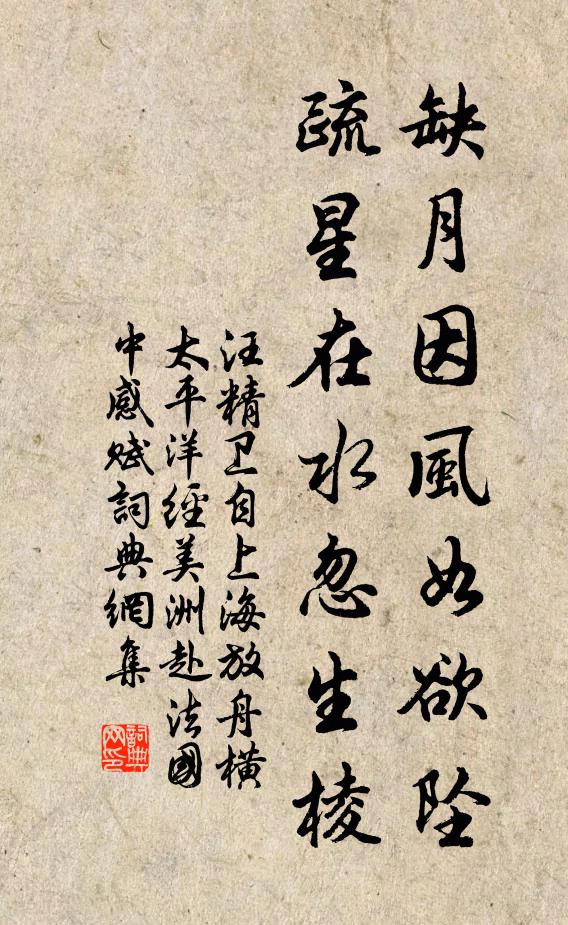 缺月因風如欲墜
疏星在水忽生棱
汪精卫自上海放舟橫
太平洋經美洲赴法國
中感赋詞典網集
詞典
网印